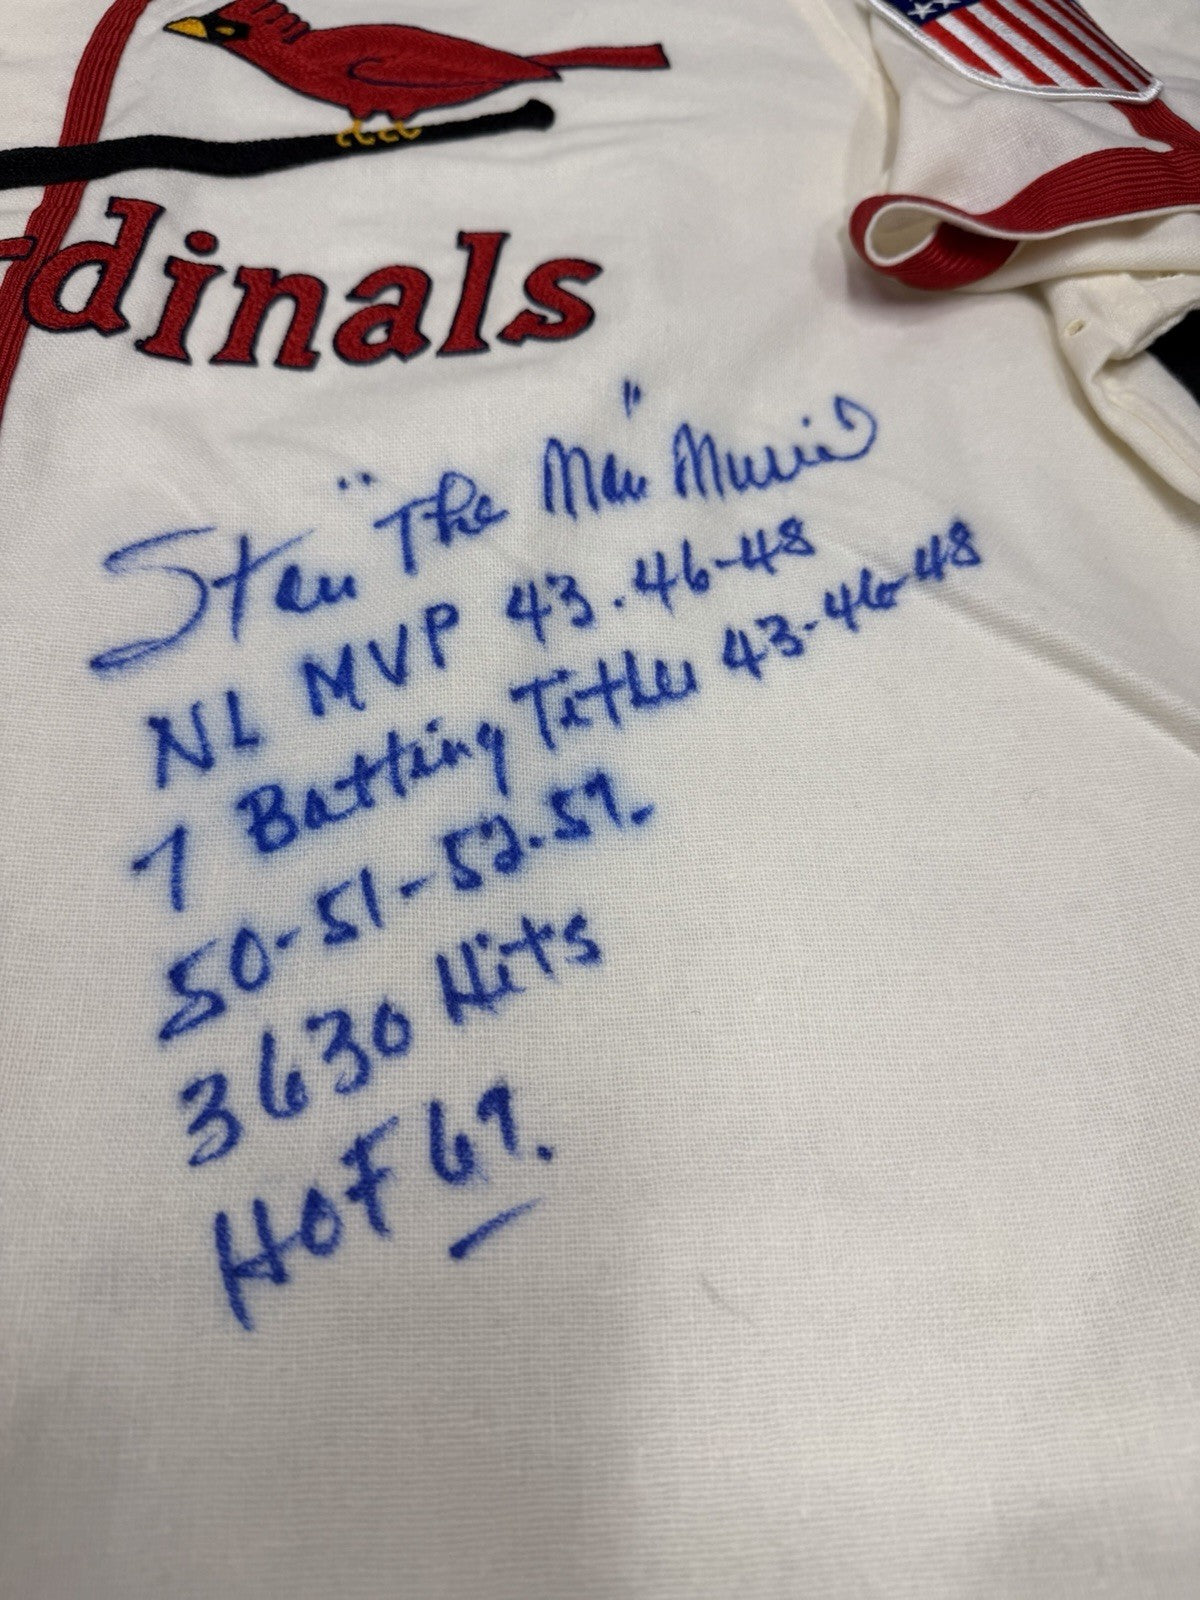 rdinals
Stan "The Man" Musial
NL MVP 43.46-48
7 Batting Titles 43-46-48
50-51-52-57-
3630 Hits
HOF 69.